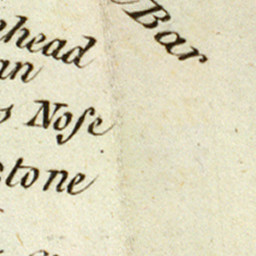 Bar
ehead
an
s Noſe
stone